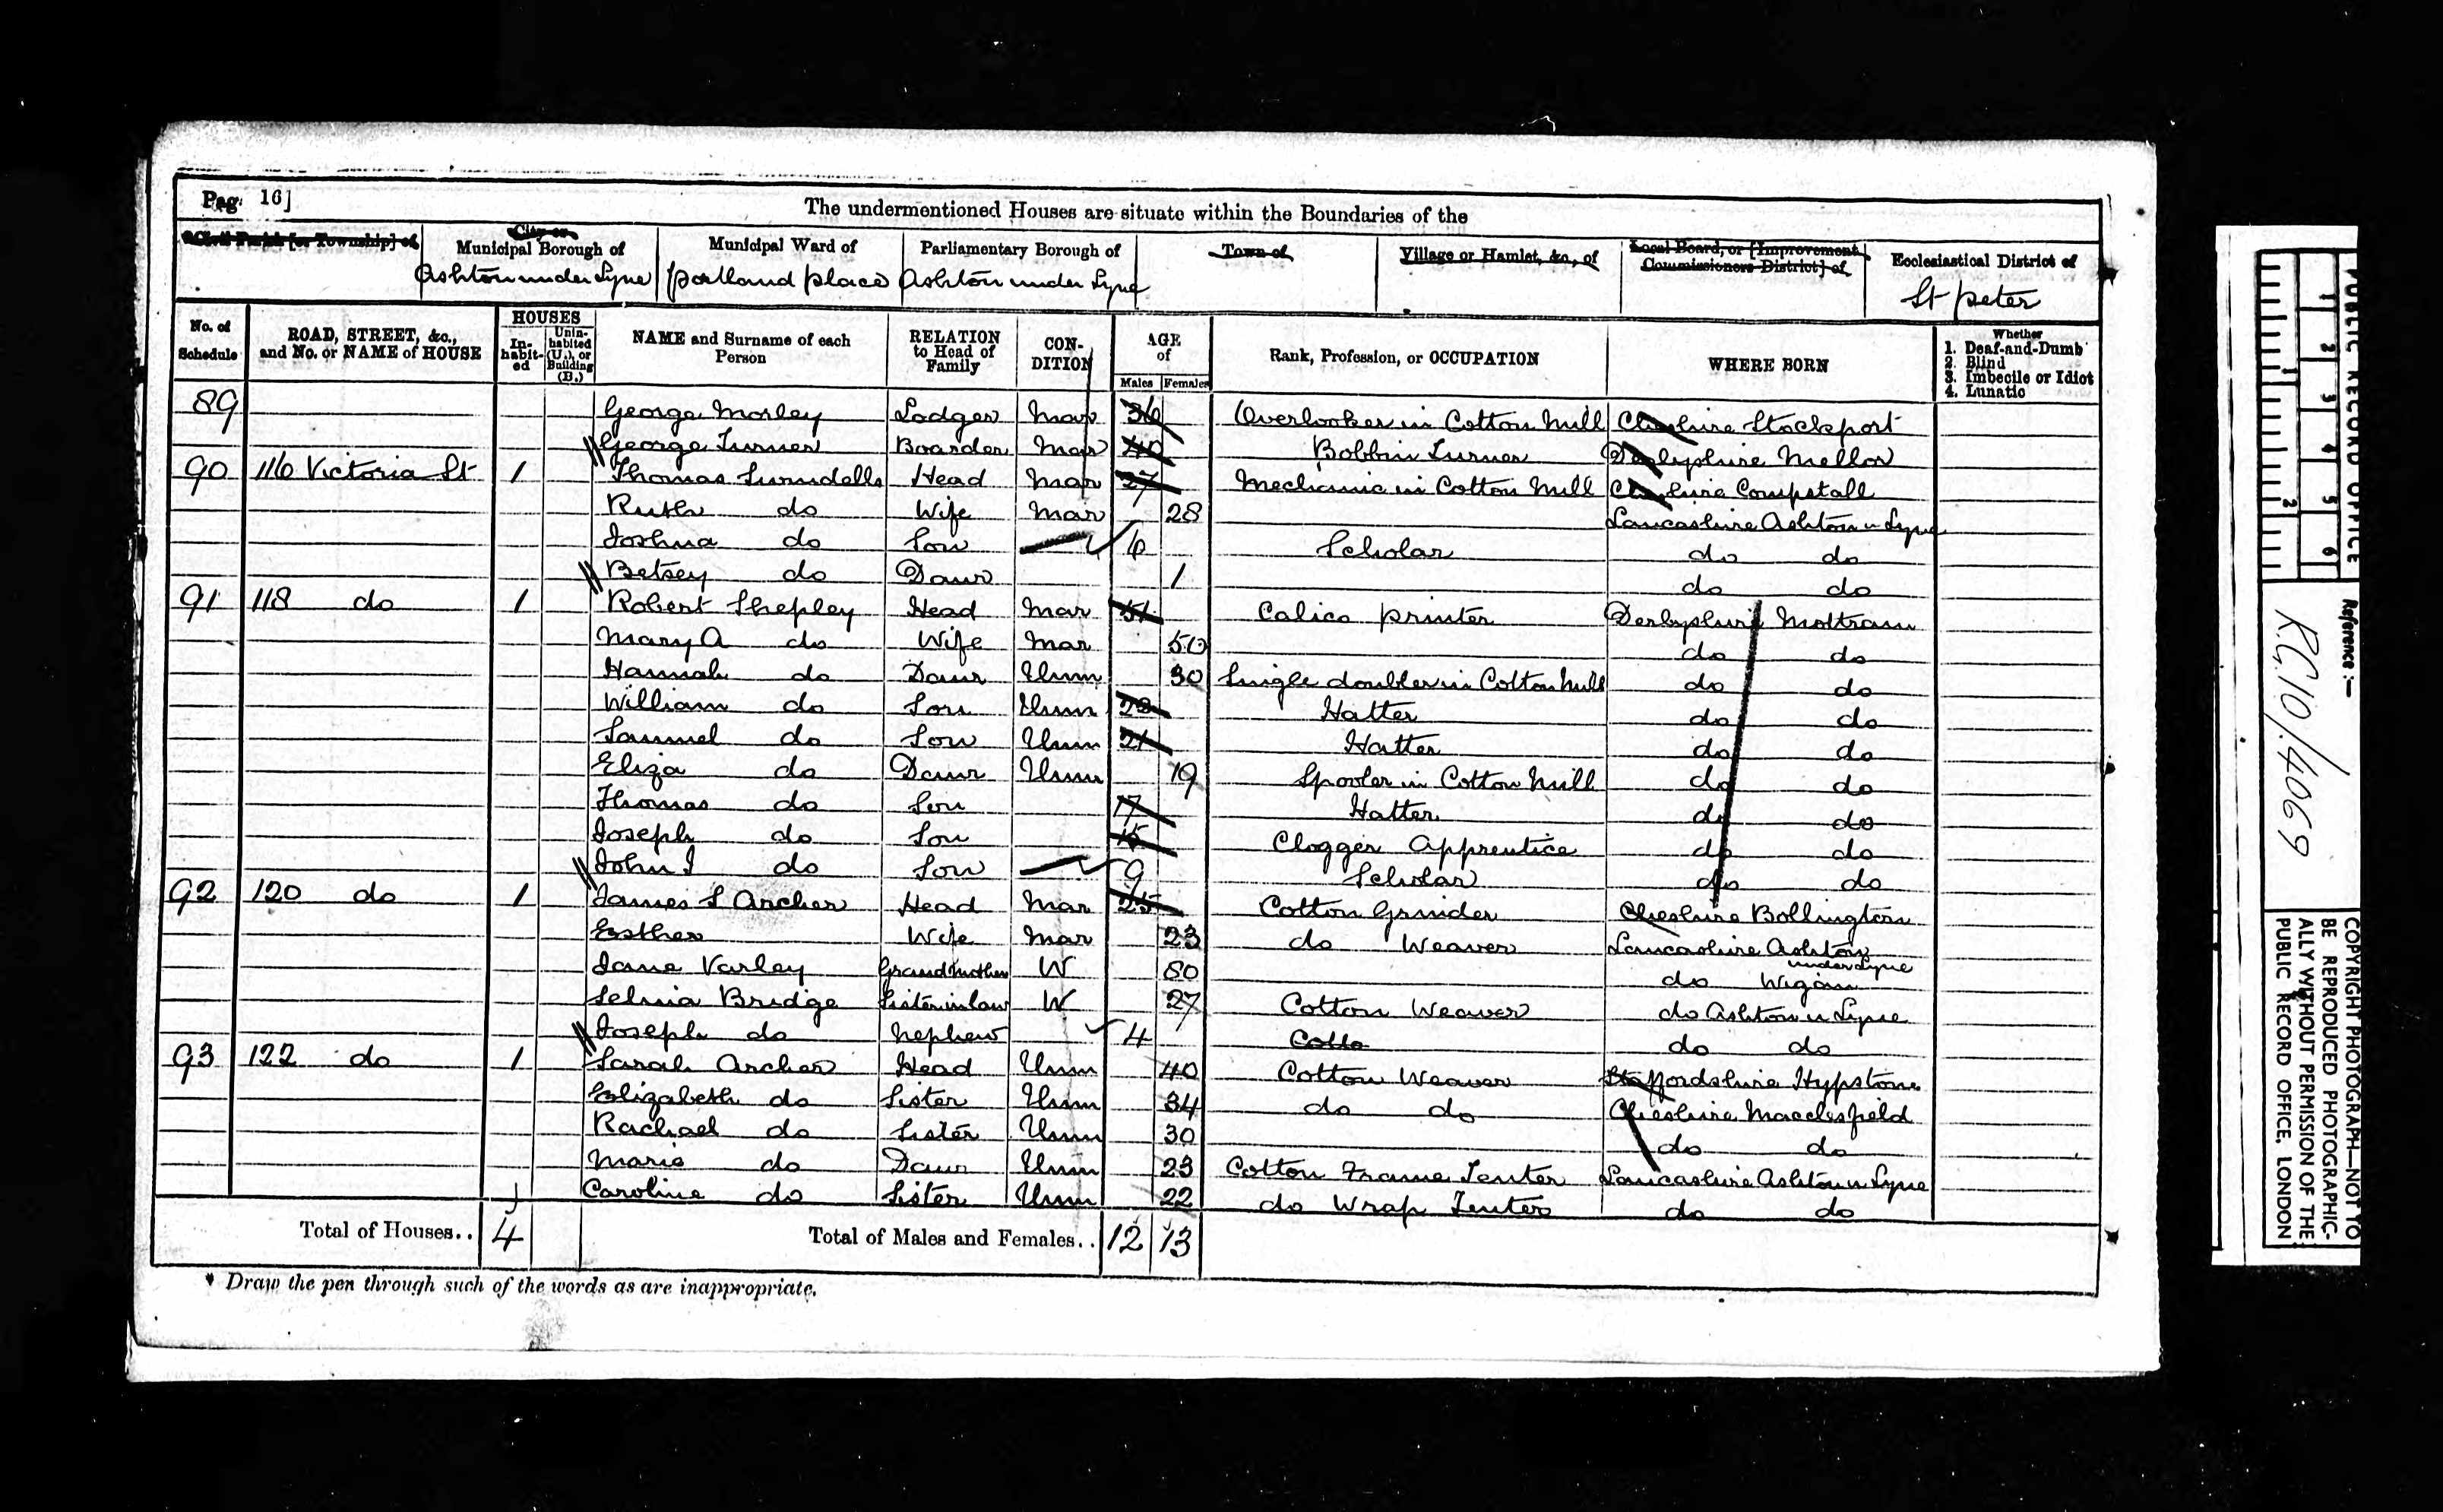 Page 16]
The undermentioned Houses are situate within the Boundaries of the
Civil Parish [or Township] of
City or Municipal Borough of
Ashton under Lyne
Municipal Ward of
Portland place
Parliamentary Borough of
Ashton under Lyne
Town of
Village or Hamlet, &c., of
Local Board, or [Improvement Commissioners District] of
Ecclesiastical District of
St peter
No. of Schedule
ROAD, STREET, &c., and No. or NAME of HOUSE
HOUSES
In-habit-ed
Unin-habited (U.), or Building (B.)
NAME and Surname of each Person
RELATION to Head of Family
CON-DITION
AGE of
Males Females
Rank, Profession, or OCCUPATION
WHERE BORN
Whether
1. Deaf-and-Dumb
2. Blind
3. Imbecile or Idiot
4. Lunatic
89 George Morley Lodger Mar 36 Overlooker in Cotton Mill Cheshire Stockport
George Turner Boarder Mar 40 Bobbin Turner Derbyshire Mellor
90 116 Victoria St 1 Thomas Head Mar 27 Mechanic in Cotton Mill Cheshire Compstall
Ruth do Wife Mar 28 Lancashire Ashton u Lyne
Joshua do Son 6 Scholar do do
Betsey do Daur 1 do do
91 118 do 1 Robert Shepley Head Mar 51 Calico printer Derbyshire Mottram
Mary A do Wife Mar 50 do do
Hannah do Daur Unm 30 Single doubler in Cotton Mill do do
William do Son Unm 23 Hatter do do
Samuel do Son Unm 21 Hatter do do
Eliza do Daur Unm 19 Spooler in Cotton Mill do do
Thomas do Son 17 Hatter do do
Joseph do Son 15 Clogger Apprentice do do
John J do Son 9 Scholar do do
92 120 do 1 James S Archer Head Mar 25 Cotton Grinder Cheshire Bollington
Esther Wife Mar 23 do Weaver Lancashire Ashton under Lyne
Jane Varley Grandmother W 80 do Wigan
Selina Bridge Sister in law W 27 Cotton Weaver do Ashton u Lyne
Joseph do Nephew 4 Cotto do do
93 122 do 1 Sarah Archer Head Unm 40 Cotton Weaver Staffordshire Hypstone
Elizabeth do Sister Unm 34 do do Cheshire Macclesfield
Rachael do Sister Unm 30 do do
Maria do Daur Unm 23 Cotton Frame Tenter Lancashire Ashton u Lyne
Caroline do Sister Unm 22 do Wrap Tenter do do
Total of Houses.. 4 Total of Males and Females.. 12 13
* Draw the pen through such of the words as are inappropriate.
PUBLIC RECORD OFFICE
1 2 3 4 5 6
1 2
Reference :—
RG.10/4069
COPYRIGHT PHOTOGRAPH—NOT TO
BE REPRODUCED PHOTOGRAPHIC-
ALLY WITHOUT PERMISSION OF THE
PUBLIC RECORD OFFICE, LONDON